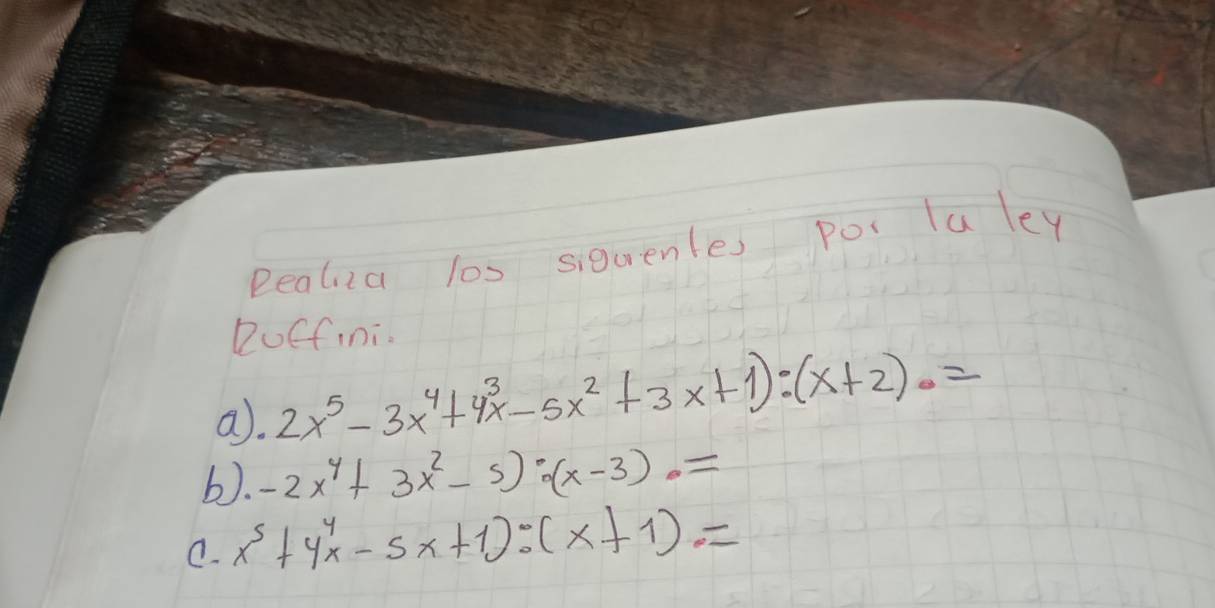 Realiza los siguientes por la ley
Ruffini.
a). 2x⁵ - 3x⁴ + 4x³ - 5x² + 3x + 1) : (x + 2) . =
b). -2x⁴ + 3x² - 5) : (x - 3) . =
c. x⁵ + 4x⁴ - 5x + 1) : (x + 1) . =